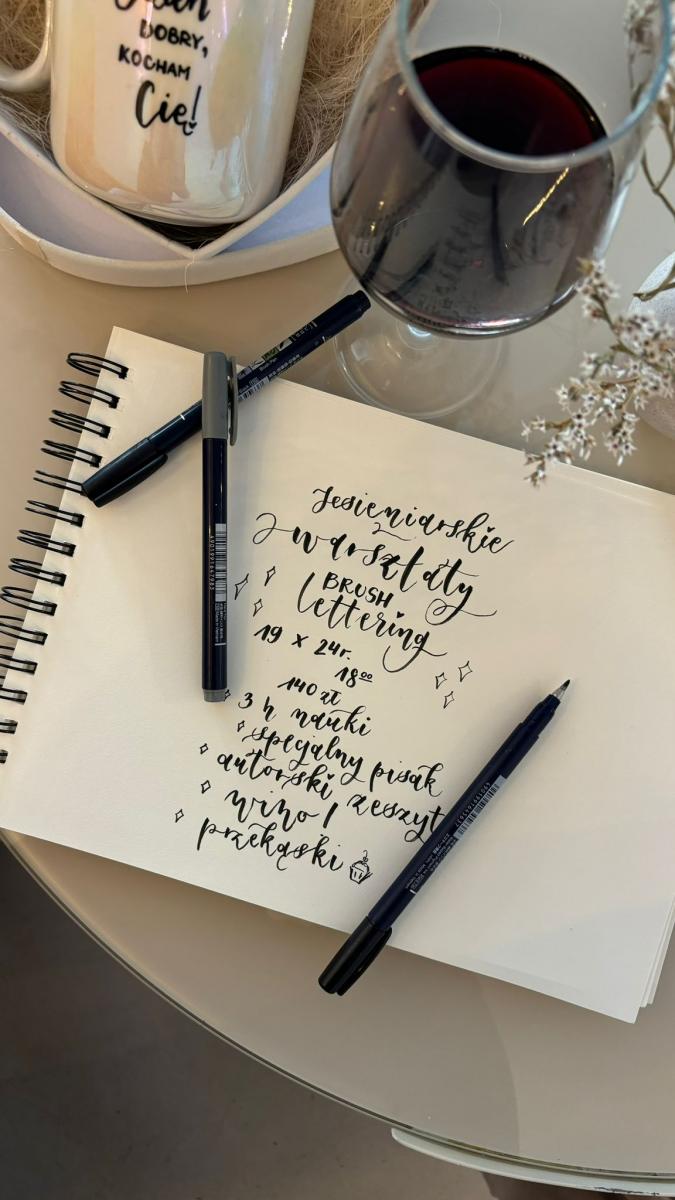 DOBRY,
KOCHAM
Cię!
Jesieniarskie
warsztaty
BRUSH
lettering
19 x 24r.
18⁰⁰
140 zł
3 h nauki
specjalny pisak
autorski zeszyt
wino /
przekąski